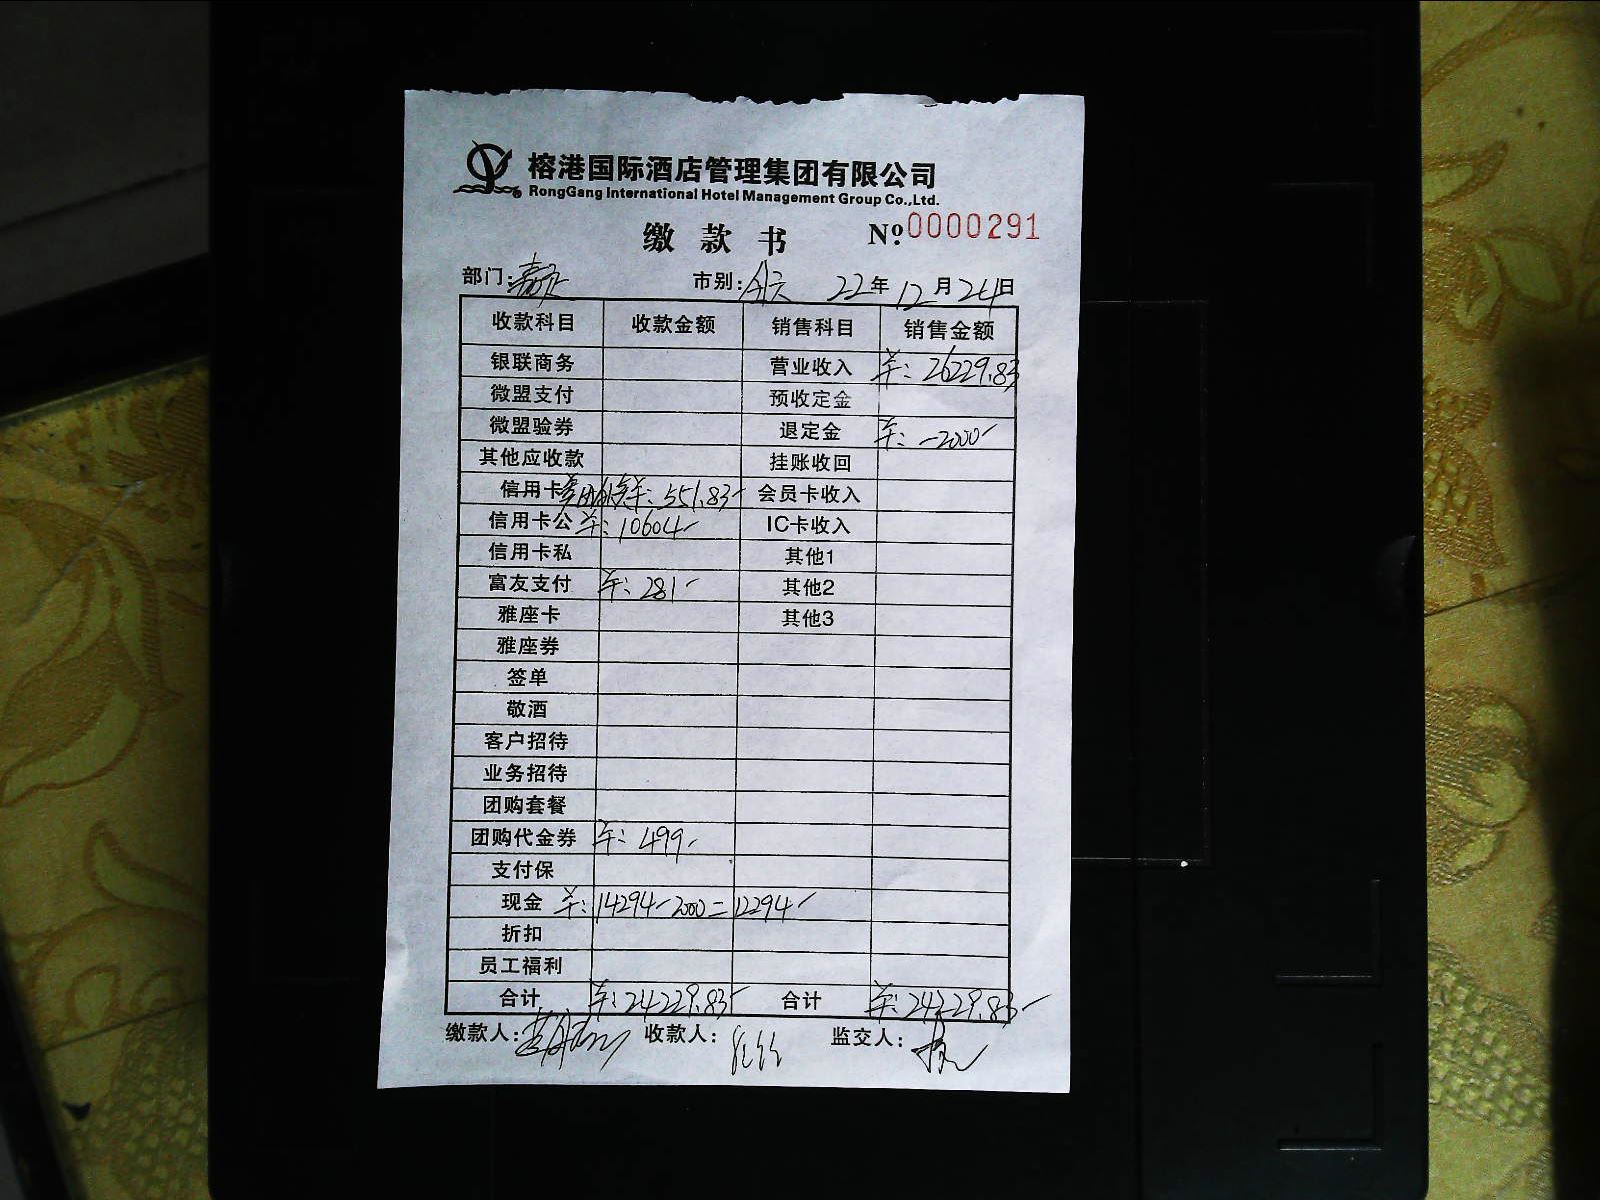 榕港国际酒店管理集团有限公司
RongGang International Hotel Management Group Co.,Ltd.
缴 款 书 Nº.0000291
部门: 市别:全天 22年12月24日
收款科目 收款金额 销售科目 销售金额
银联商务 营业收入 羊: 26229.83
微盟支付 预收定金
微盟验券 退定金 羊: -2000-
其他应收款 挂账收回
信用卡 羊: 551.83- 会员卡收入
信用卡公 羊: 10604- IC卡收入
信用卡私 其他1
富友支付 羊: 281- 其他2
雅座卡 其他3
雅座券
签单
敬酒
客户招待
业务招待
团购套餐
团购代金券 羊: 499-
支付保
现金 羊: 14294-2000=12294-
折扣
员工福利
合计 羊: 24229.83- 合计 羊: 24229.83-
缴款人: 收款人: 监交人: